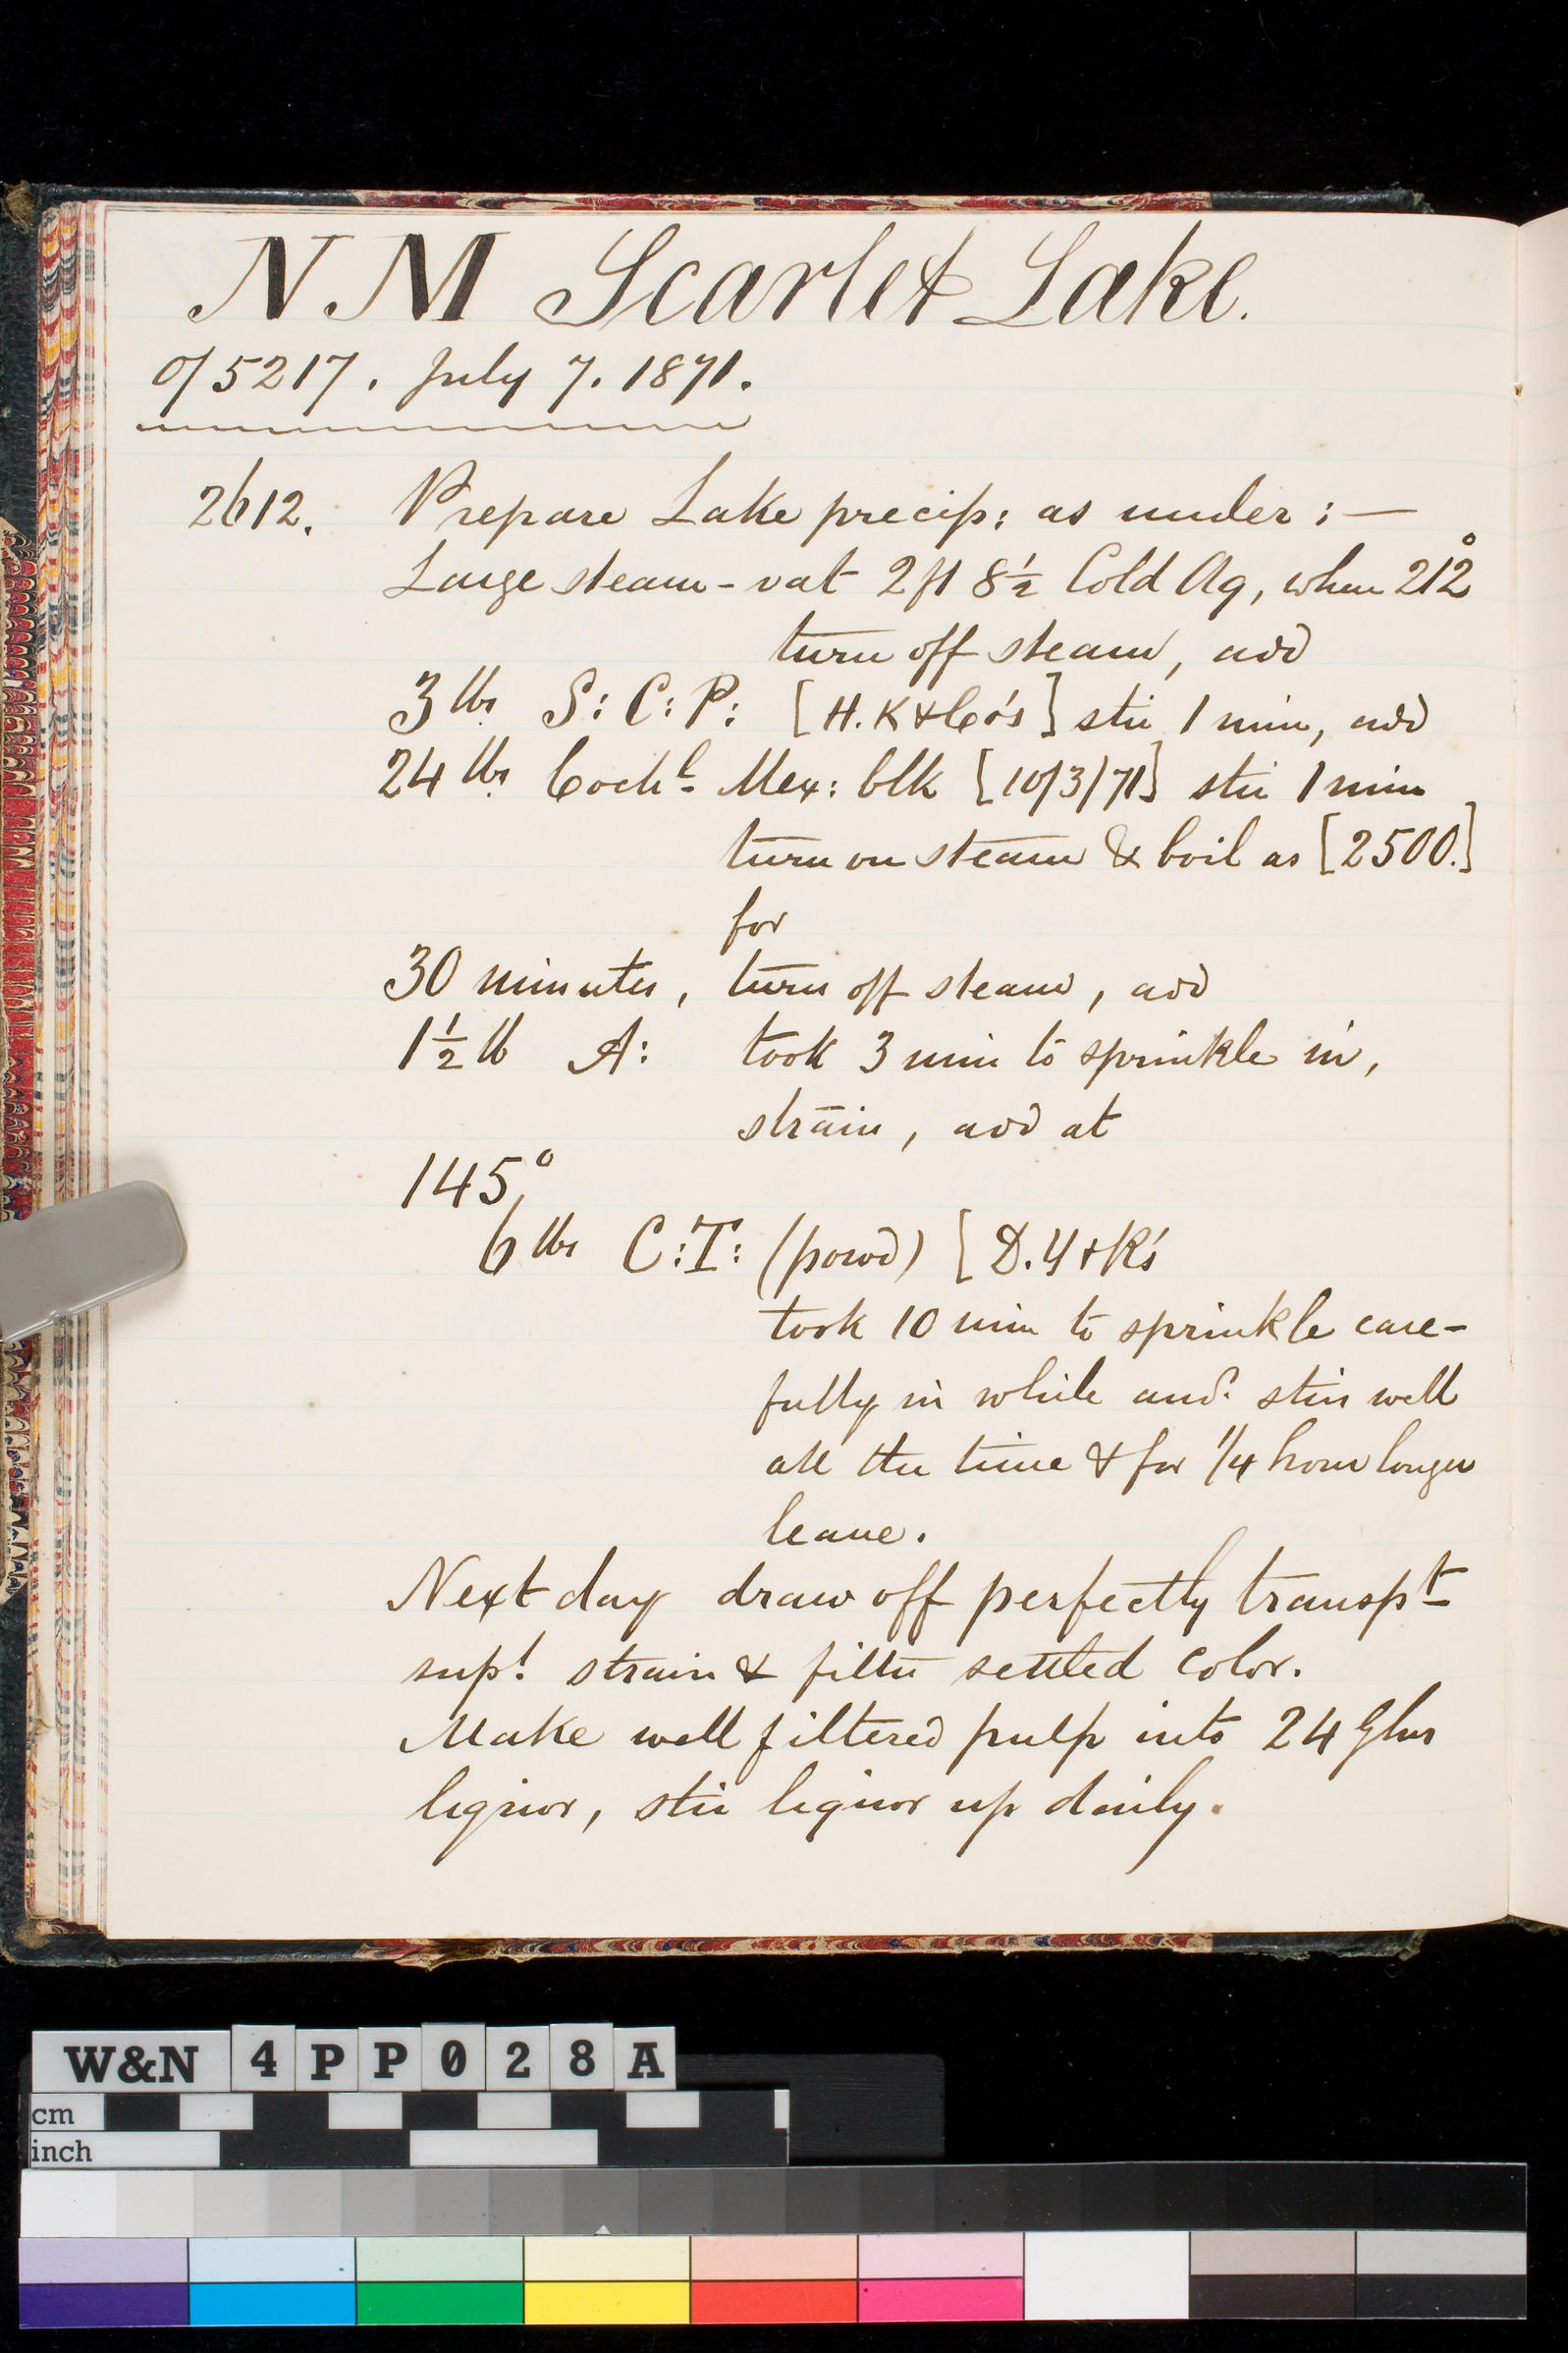 NM Scarlet Lake.
o/5217. July 7. 1871.
2612. Prepare Lake precip: as under:—
Large steam-vat 2ft 8½ Cold Aq, when 212°
turn off steam, add
3 lbs S: C: P: [H. K & Co's] stir 1 min, add
24 lbs Cochl Mex: blk [10/3/71] stir 1 min
turn on steam & boil as [2500.]
for
30 minutes, turn off steam, add
1½ lb A: took 3 min to sprinkle in,
strain, add at
145°,
6 lbs C:T: (powd) [D. Y & R's
took 10 min to sprinkle care-
fully in while and stir well
all the time & for 1/4 hour longer
leave.
Next day draw off perfectly transpt
supt strain & filter settled color.
Make well filtered pulp into 24 Glns
liquor, stir liquor up daily.
W&N 4PP028A
cm
inch